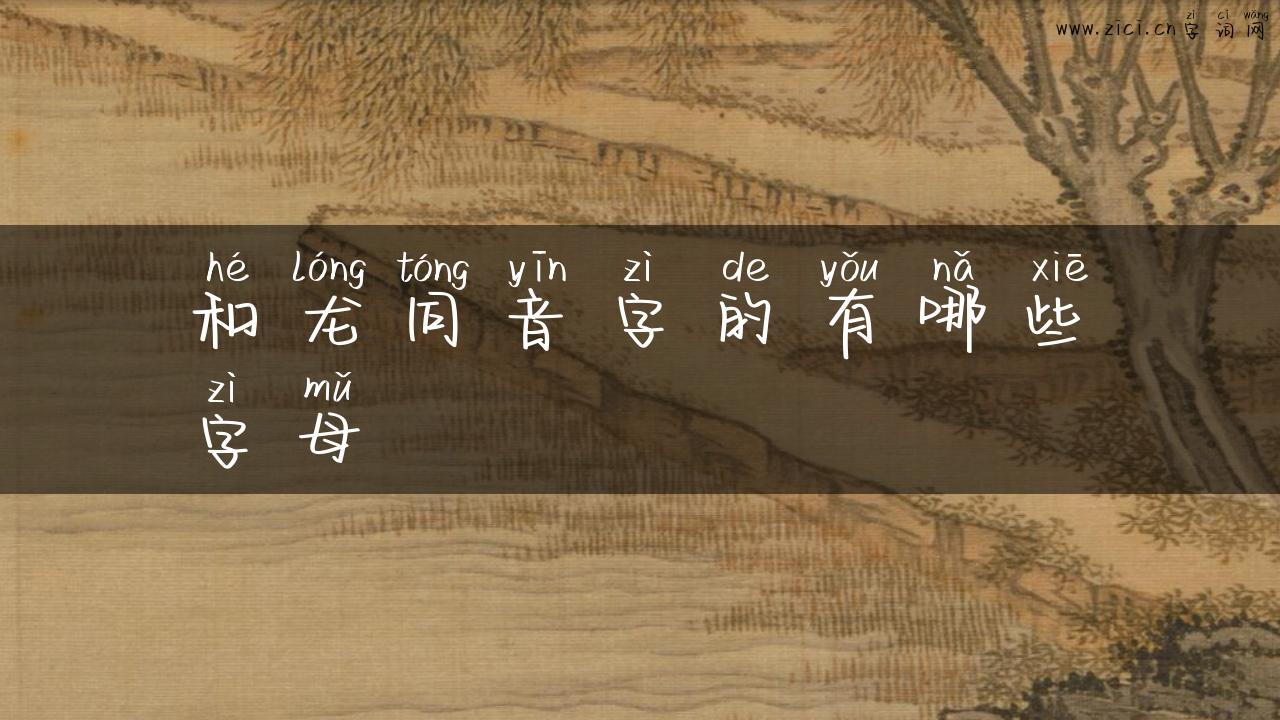 zì cí wǎng
www.zici.cn字词网
hé lóng tóng yīn zì de yǒu nǎ xiē
和龙同音字的有哪些
zì mǔ
字母